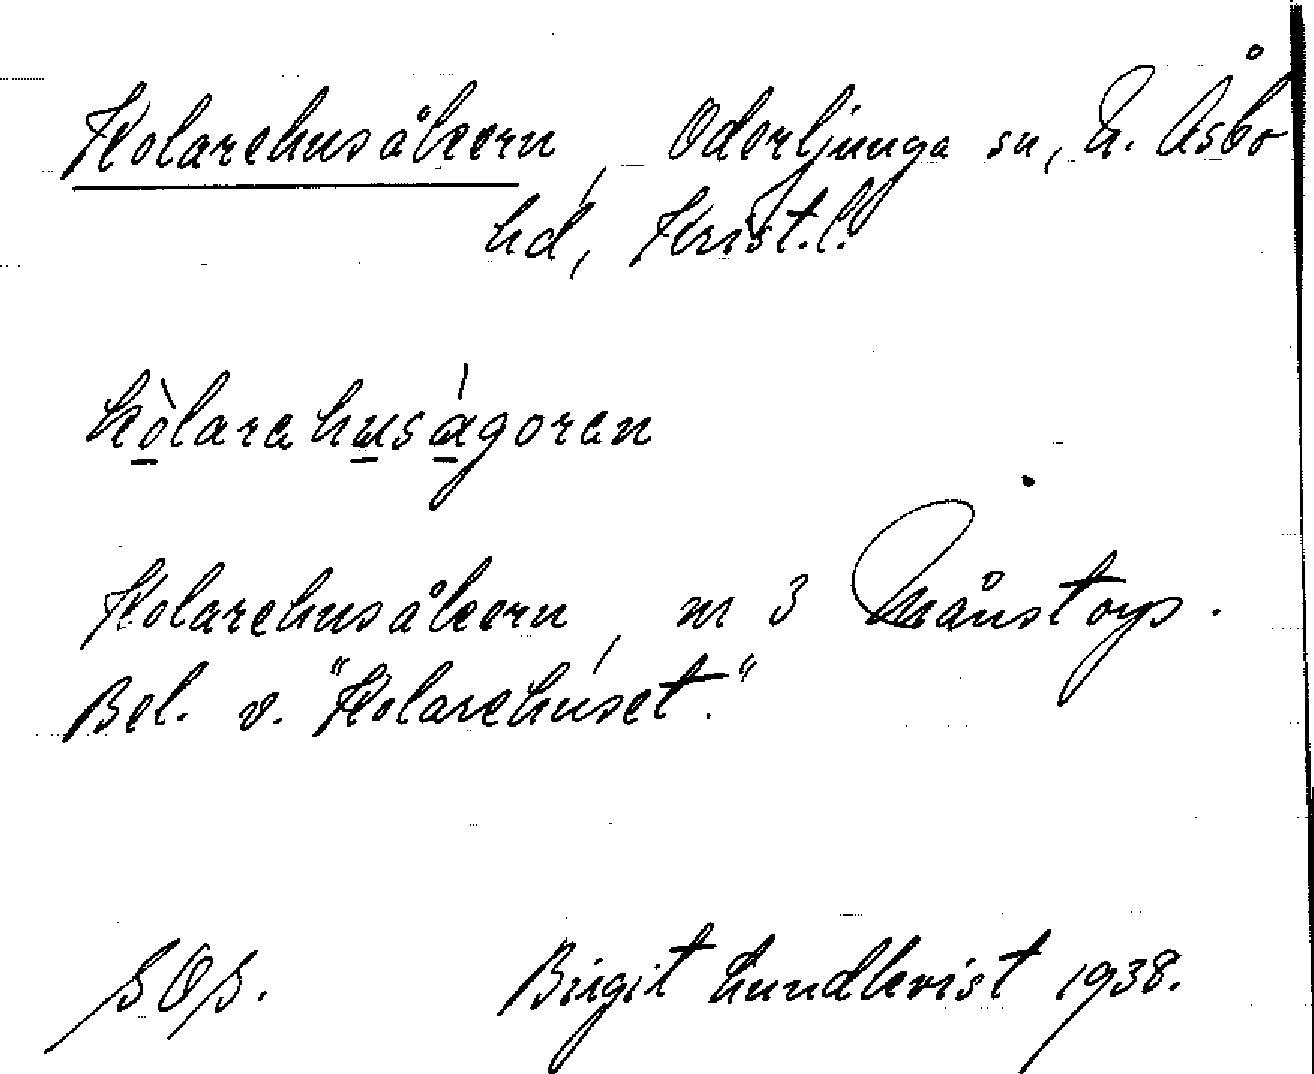 Kolarehusåkern, Oderljunga sn, N. Åsbo
hd, Krist. l.
kòlarahuságoran
Kolarehusåkern, nr 3 Månstorp.
Bel. v. "Kolarehuset."
SOS. Birgit Lundkvist 1938.